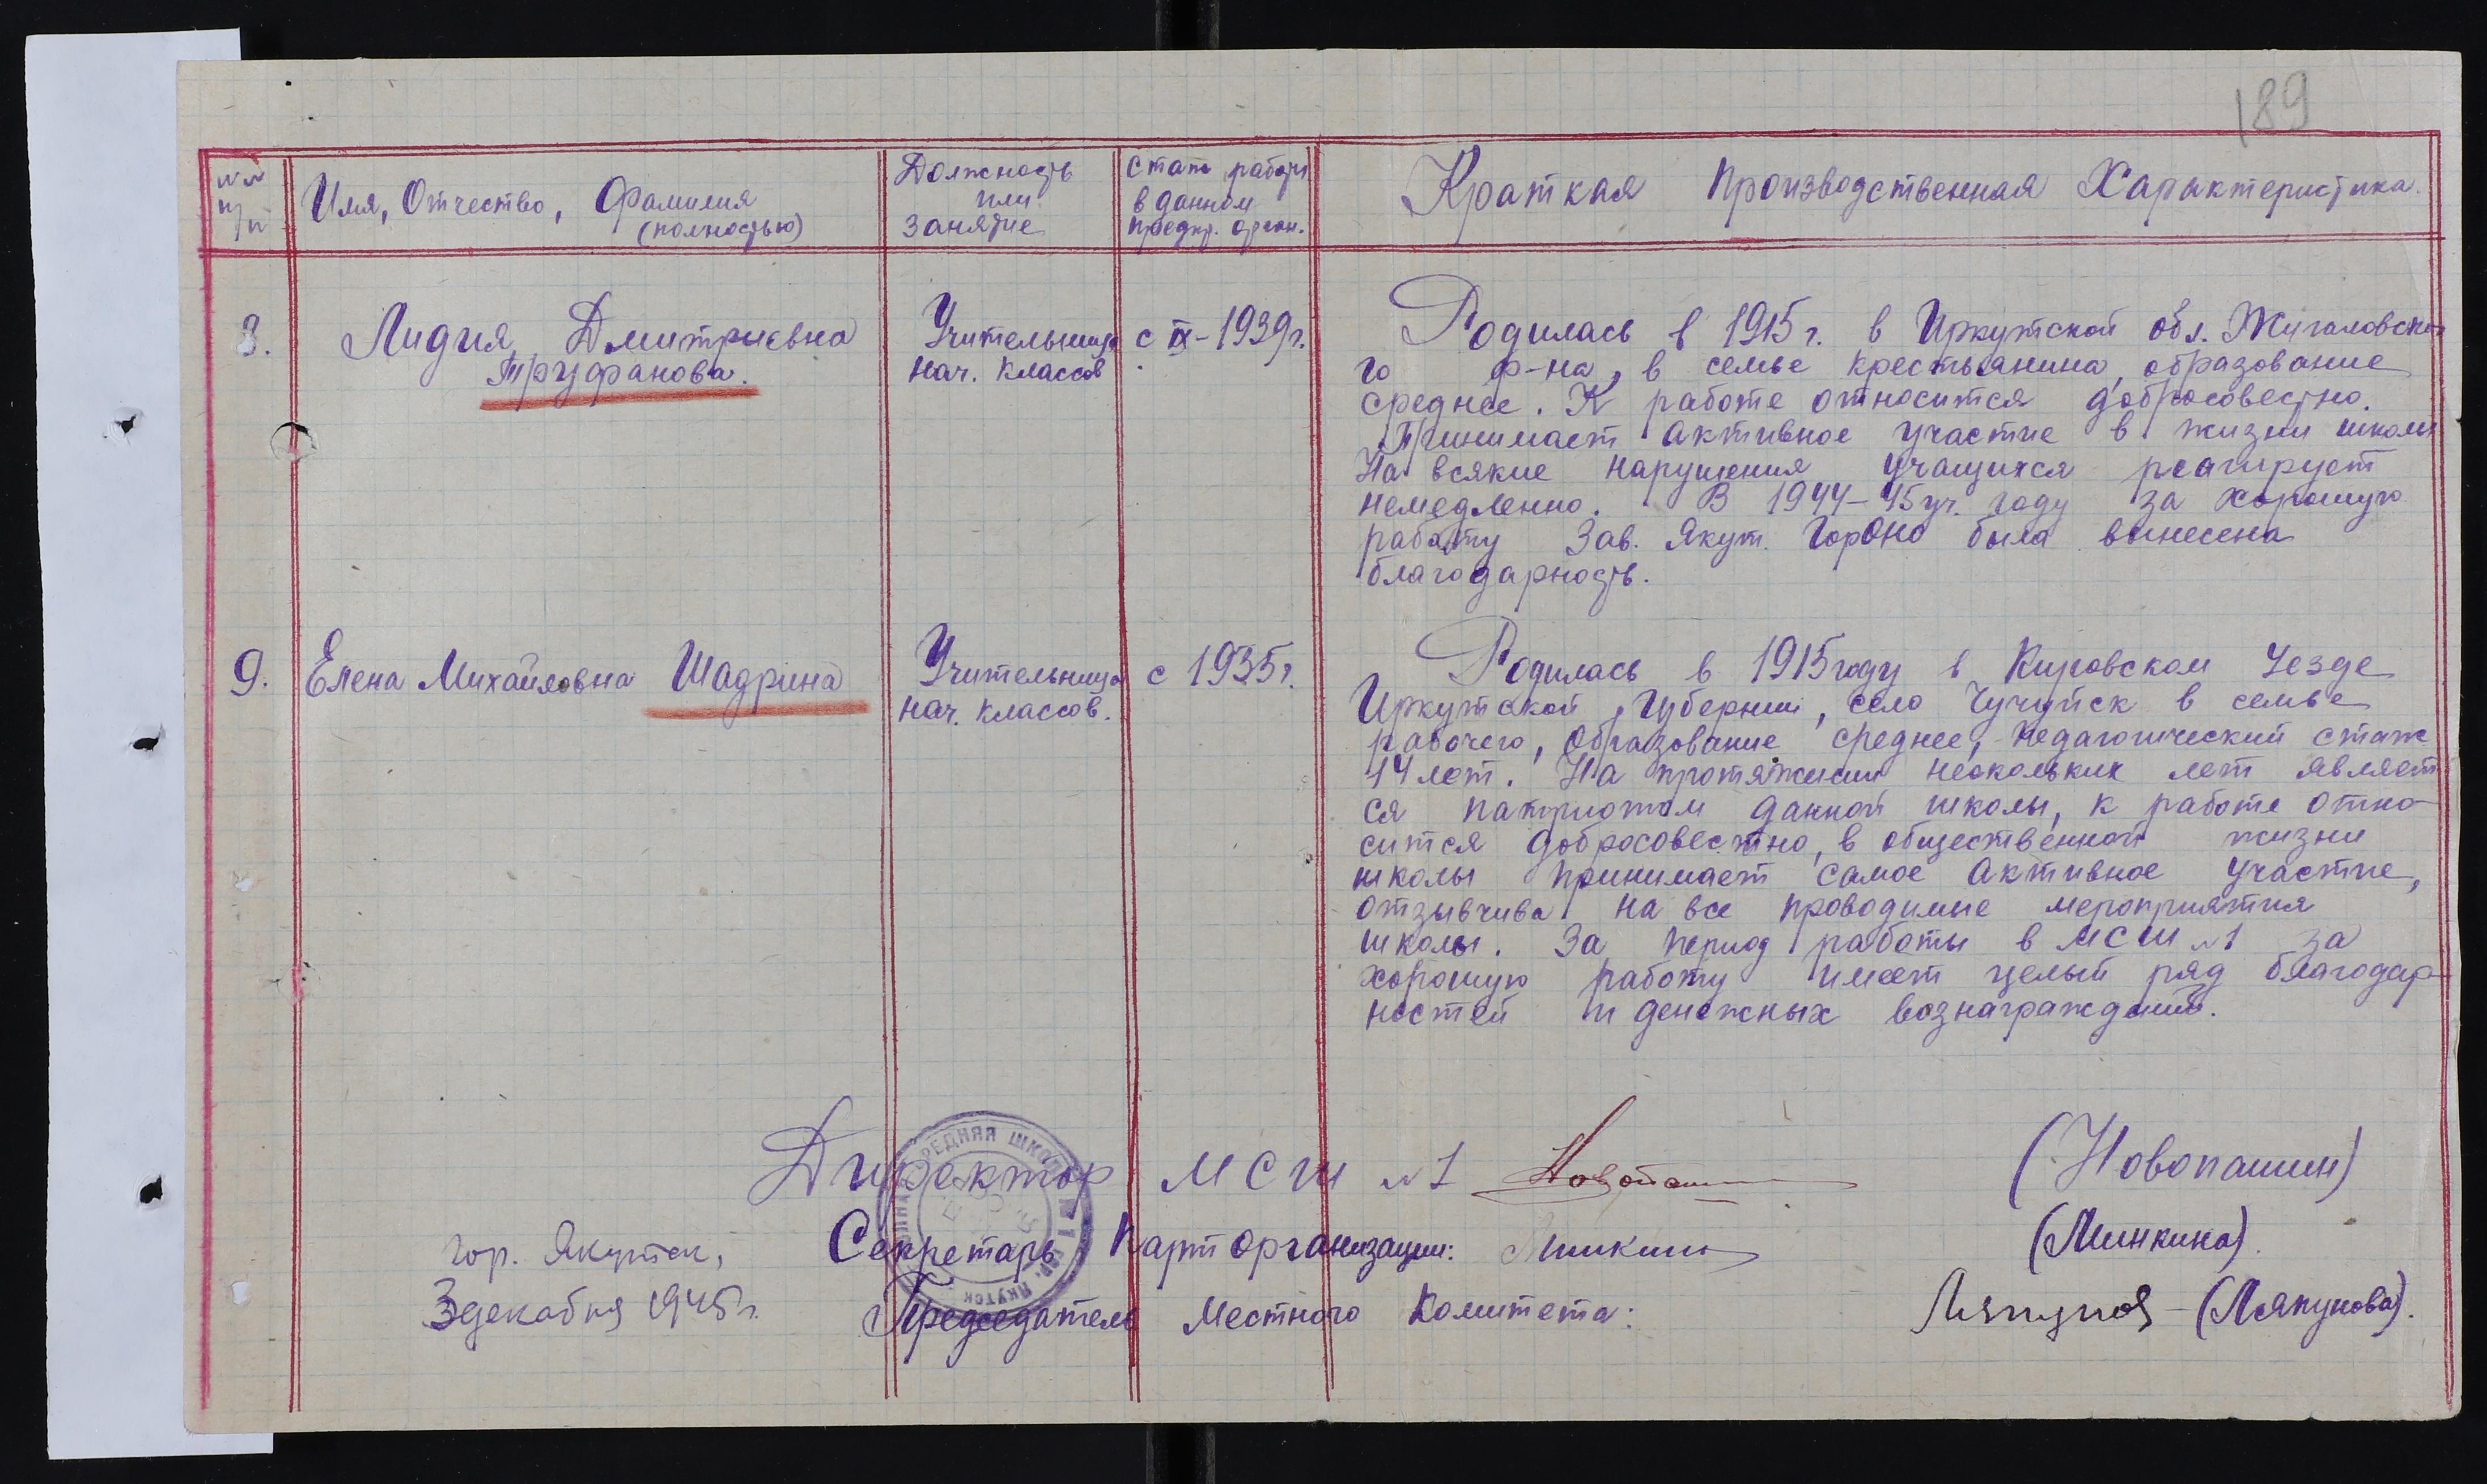 189
№№ п/п
Имя, Отчество, Фамилия (полностью)
Должность или занятие
Стаж работы в данном предпр. орган.
Краткая Производственная Характеристика.
8.
Лидия Дмитриевна
Труфанова.
Учительница
нач. классов
с IX-1939г.
Родилась в 1915г. в Иркутской обл. Жигаловско-
го р-на, в семье крестьянина, образование
среднее. К работе относится добросовестно.
Принимает активное участие в жизни школы
На всякие нарушения учащихся реагирует
немедленно. В 1944-45 уч. году за хорошую
работу Зав. Якут. ГорОНО была вынесена
благодарность.
9.
Елена Михайловна Шадрина
Учительница
нач. классов.
с 1935г.
Родилась в 1915 году в Кировском Уезде
Иркутской Губернии, село Чучуйск в семье
рабочего, Образование среднее, педагогический стаж
14 лет. На протяжении нескольких лет являет
ся патриотом данной школы, к работе отно-
сится добросовестно, в общественной жизни
школы принимает самое активное участие,
отзывчива на все проводимые мероприятия
школы. За период работы в МСШ №1 за
хорошую работу имеет целый ряд благодар-
ностей и денежных вознаграждений.
СРЕДНЯЯ ШКОЛА №1 ГОР. ЯКУТСК
Директор МСШ №1 Новопаш (Новопашин)
гор. Якутск, Секретарь Парт организации: Минкина (Минкина).
3 декабря 1945г. Председатель Местного Комитета: Ляпунова - (Ляпунова).